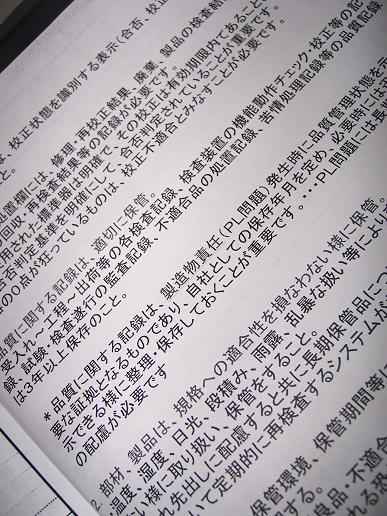 、校正状態を識別する表示(合否、校正
こと。
処置欄には、修理・再校正結果、廃棄、製品の検査結
の回収・再検査結果等の記録が必要です。
用された標準器は明確で、その校正は有効期限内であること。
合否判定基準を明確にして、合否判定されていることが重要です。
の0点が狂っているものは、校正不適合とみなすことが必要です。
品質に関する記録は、適切に保管。
受入れ〜工程〜出荷等の各検査記録、検査装置の機能動作チェック、校正等の記
録、試験・検査遂行の監査記録、不適合品の処置記録、苦情処理記録等の品質記録
は3年以上保存のこと。
*品質に関する記録は、製造物責任(PL問題)発生時に品質管理状態を示
要な証拠となるものであり、自社としての保存年月を定め、必要時には
示できる様に整理・保存しておくことが重要です。・・・PL問題には長
の配慮が必要です
2. 部材、製品は、規格への適合性を損なわない様に保管。
温度、湿度、日光、段積み、雨露、乱暴な扱い等によ
い様に取り扱い、保管をすること。
れ先出しに配慮すると共に長期保管品につ
いて定期的に再検査するシステムが
保管環境、保管期間等に
良品・不適合
れる恐